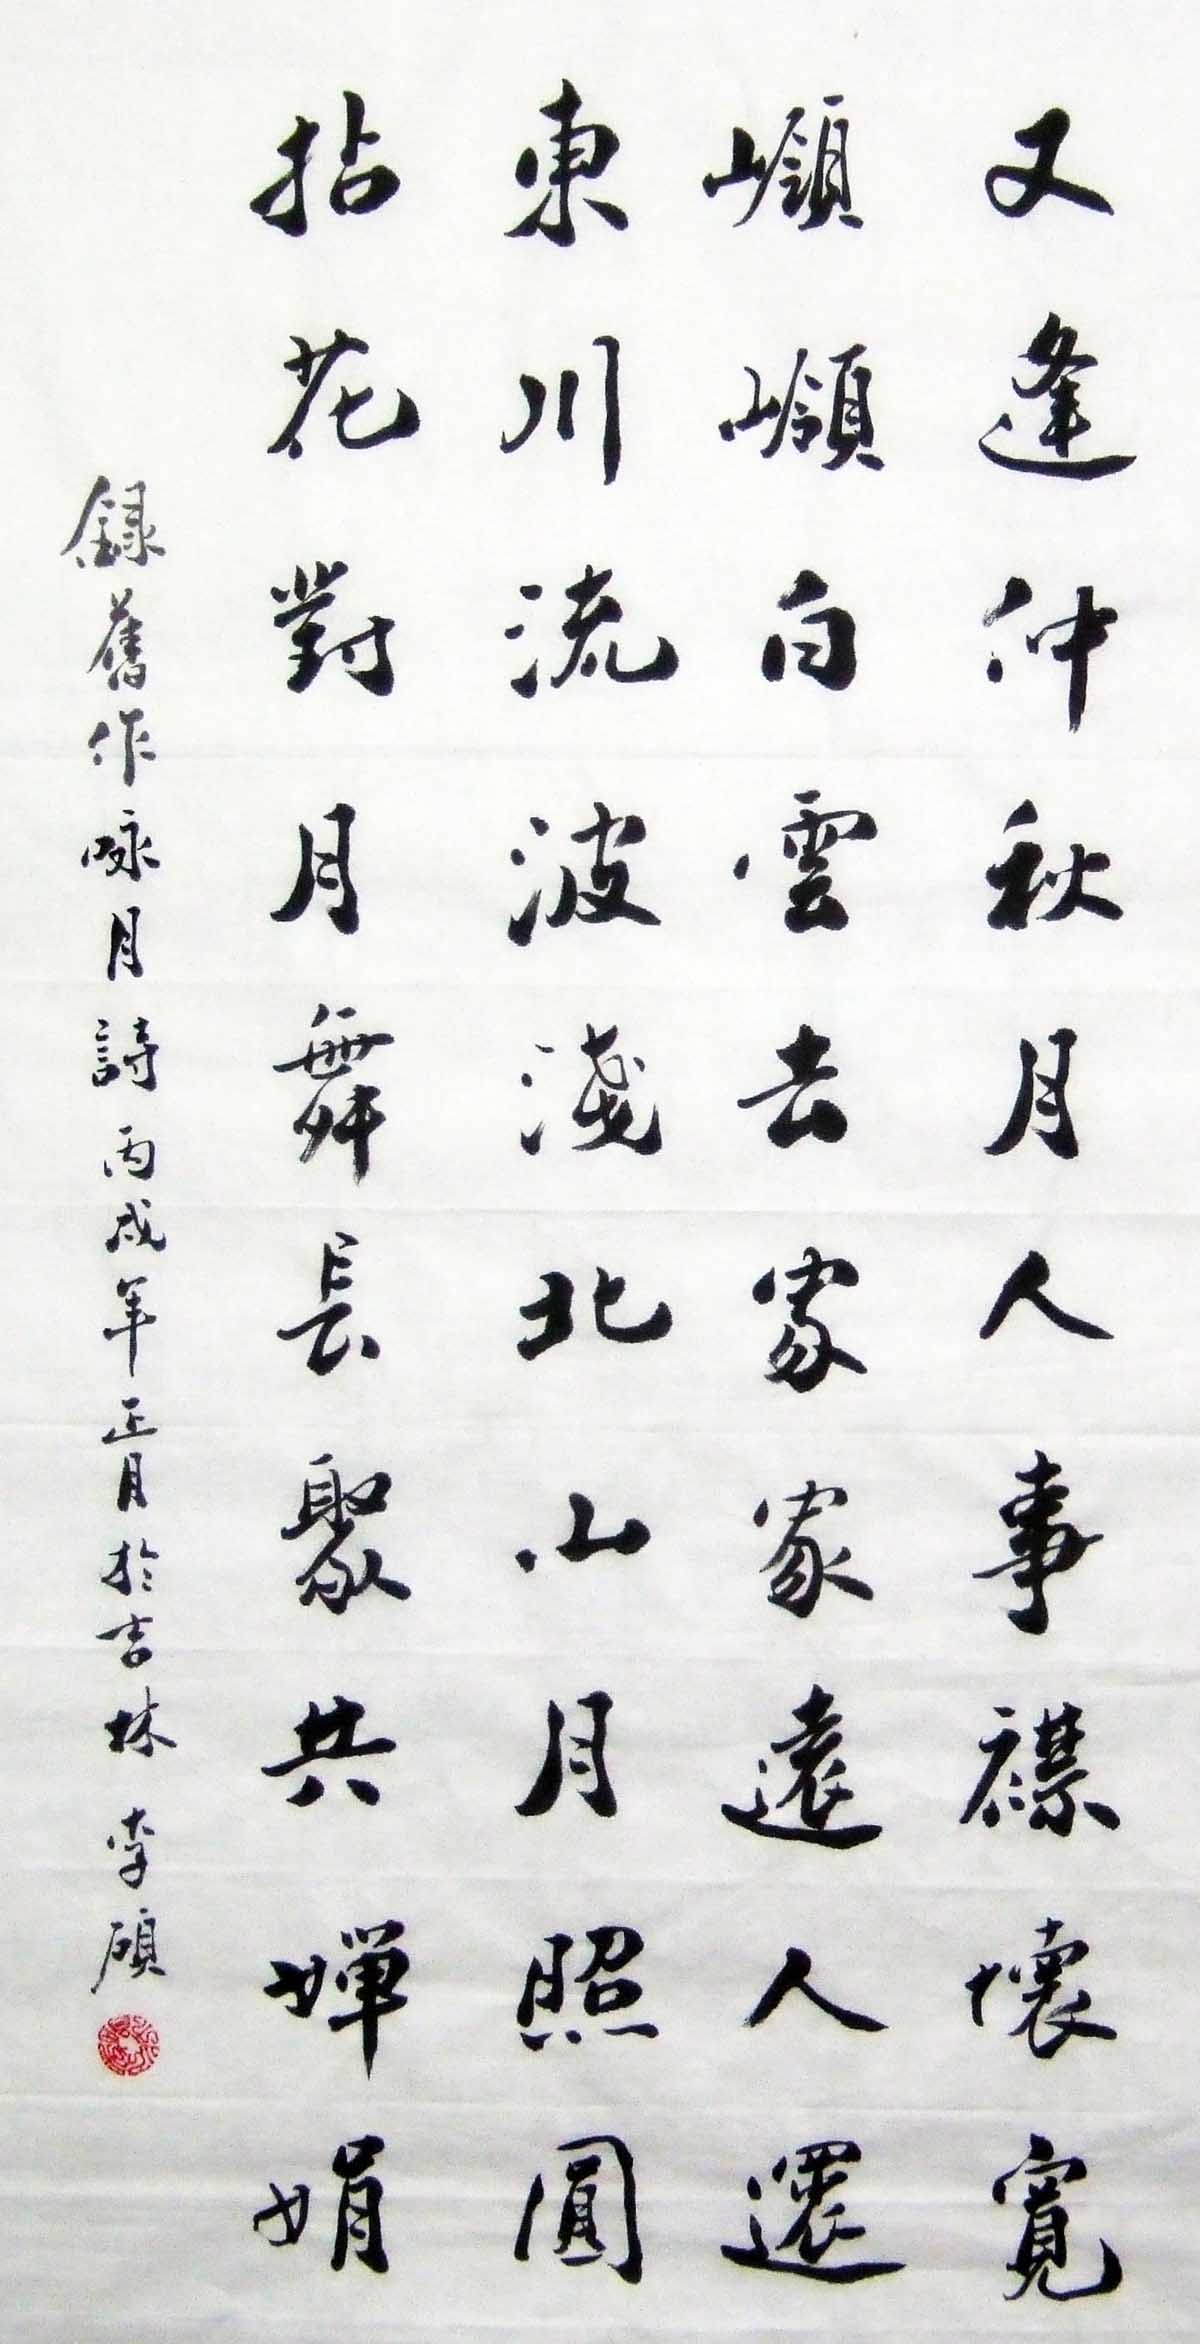 又逢仲秋月人事襟懷寬
嶺嶺白雲去家家遠人還
東川流波淺北山月照圓
拈花對月舞長聚共嬋娟
錄舊作咏月詩丙戌年正月於吉林李碩